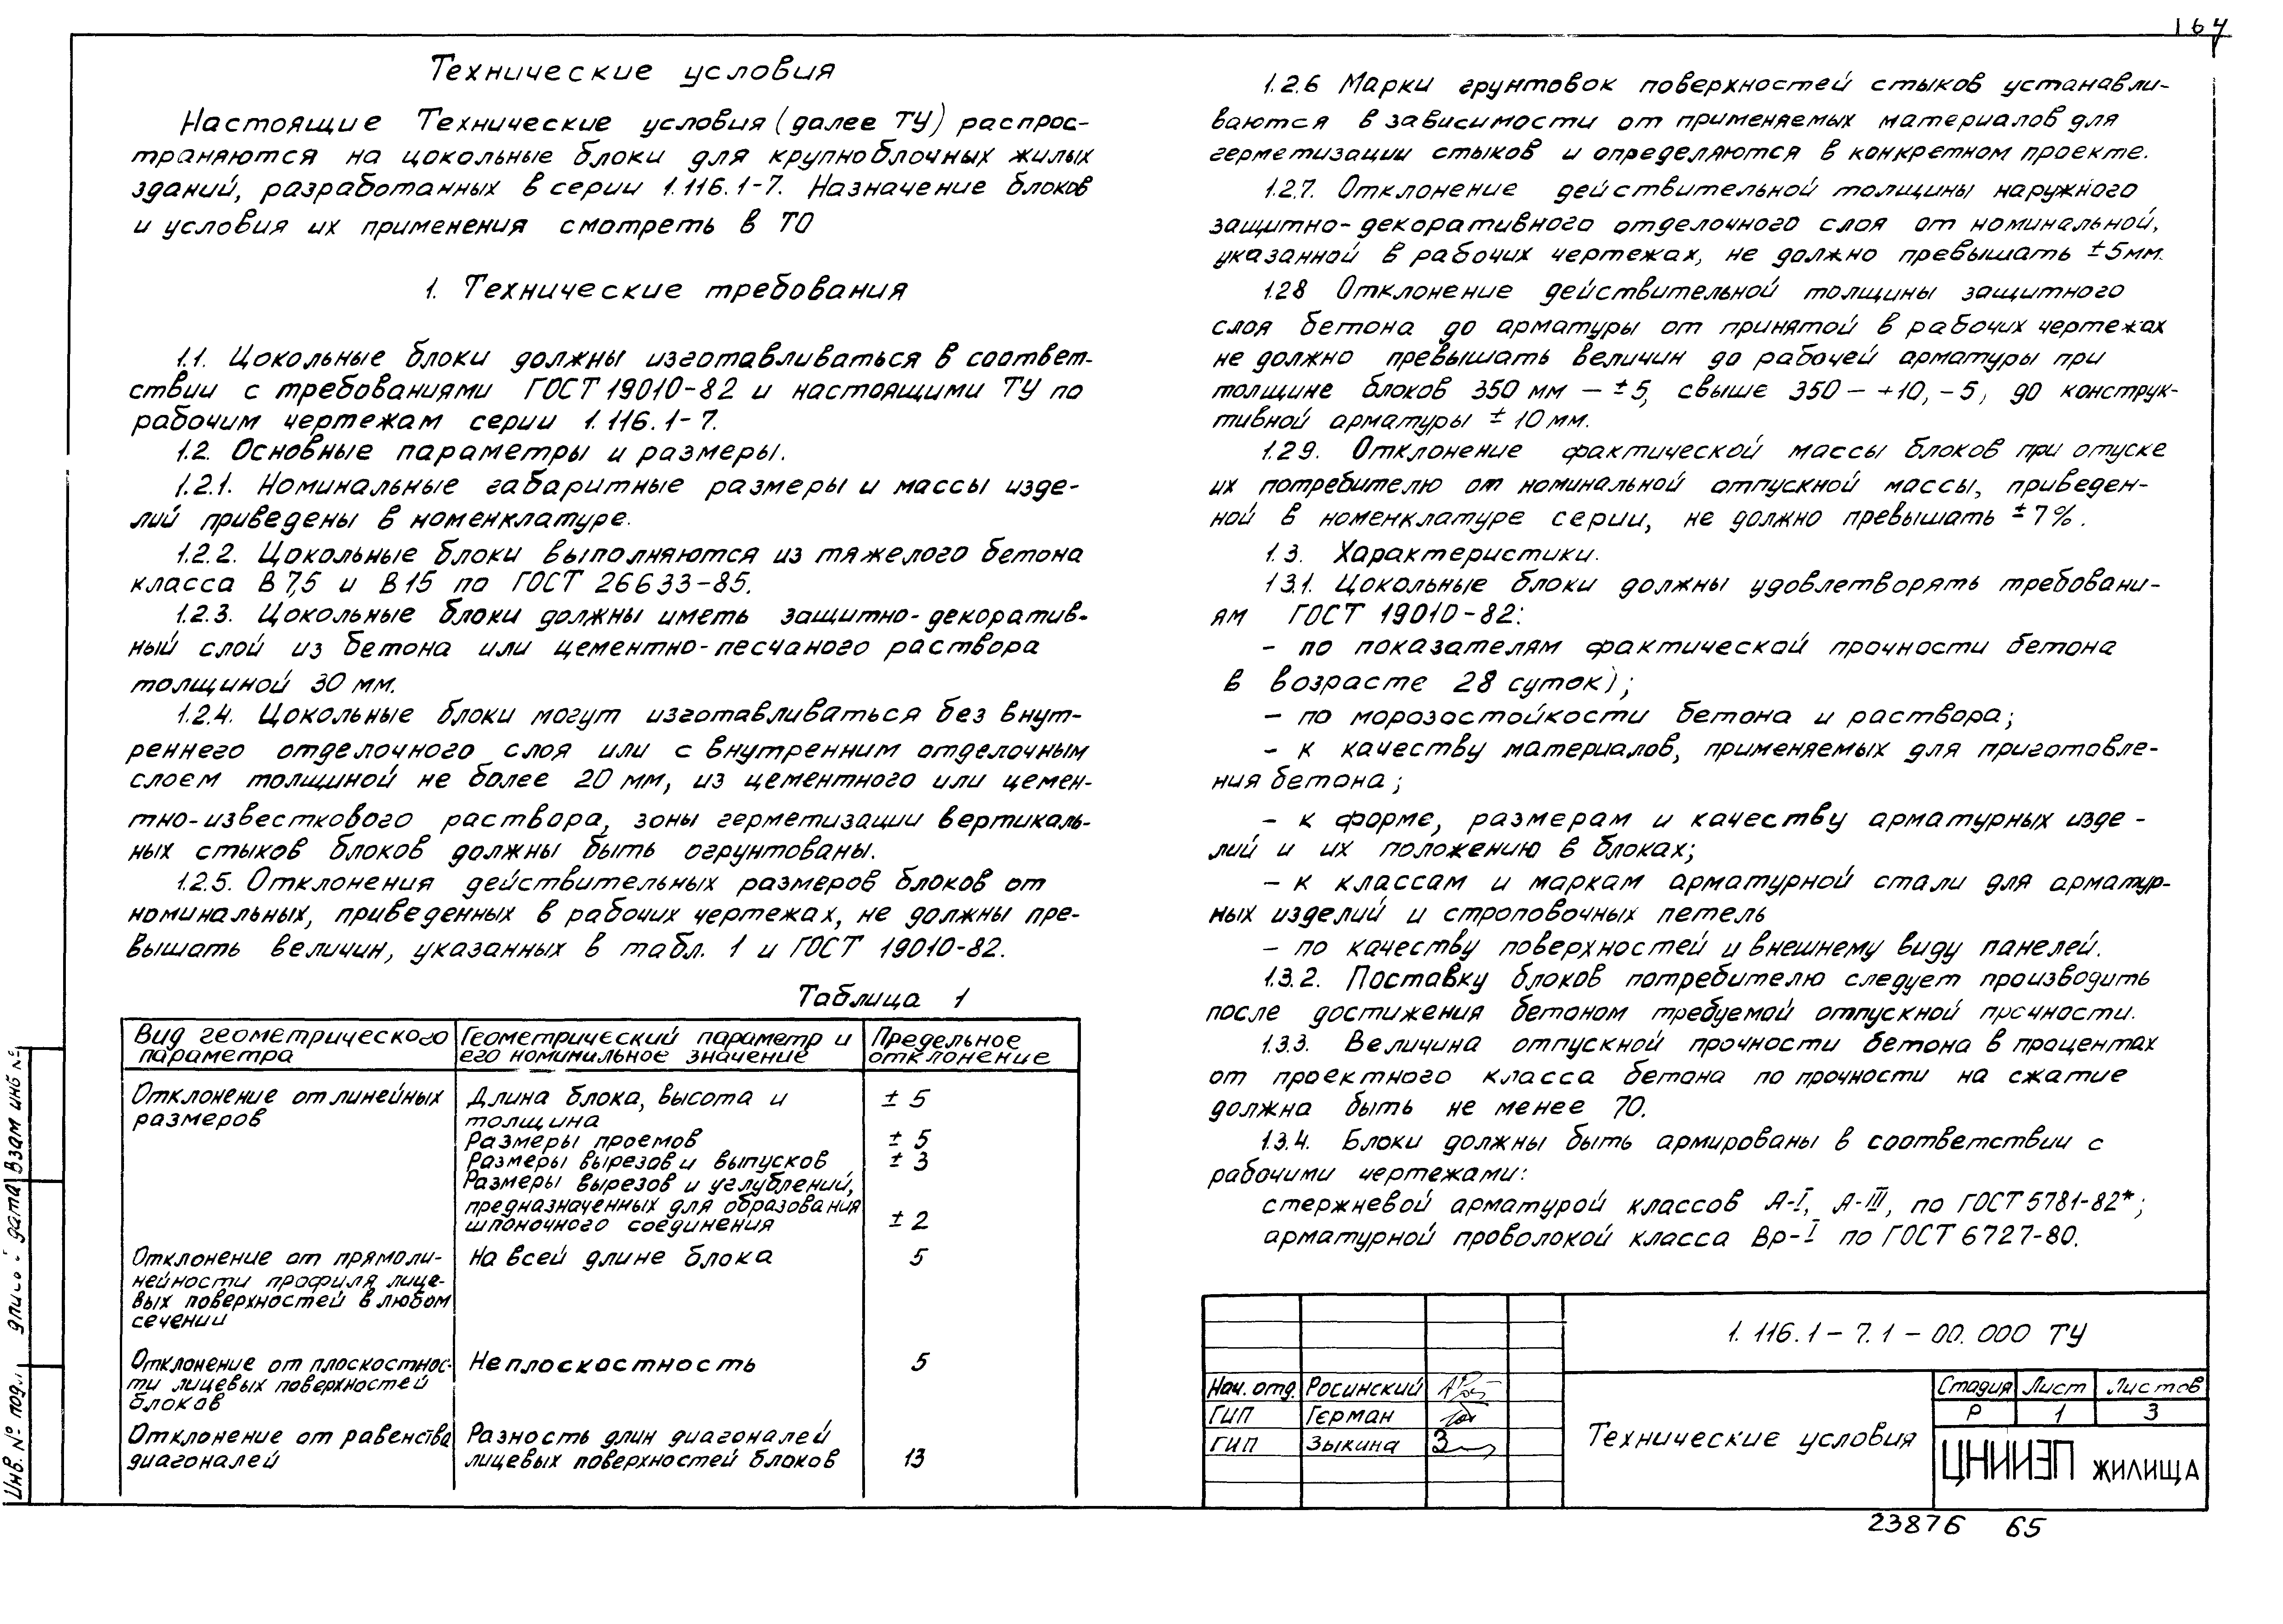 164
Технические условия
Настоящие Технические условия (далее ТУ) распрос-
траняются на цокольные блоки для крупноблочных жилых
зданий, разработанных в серии 1.116.1-7. Назначение блоков
и условия их применения смотреть в ТО
1. Технические требования
1.1. Цокольные блоки должны изготавливаться в соответ-
ствии с требованиями ГОСТ 19010-82 и настоящими ТУ по
рабочим чертежам серии 1.116.1-7.
1.2. Основные параметры и размеры.
1.2.1. Номинальные габаритные размеры и массы изде-
лий приведены в номенклатуре.
1.2.2. Цокольные блоки выполняются из тяжелого бетона
класса В 7,5 и В15 по ГОСТ 26633-85.
1.2.3. Цокольные блоки должны иметь защитно-декоратив-
ный слой из бетона или цементно-песчаного раствора
толщиной 30 мм.
1.2.4. Цокольные блоки могут изготавливаться без внут-
реннего отделочного слоя или с внутренним отделочным
слоем толщиной не более 20 мм, из цементного или цемен-
тно-известкового раствора, зоны герметизации вертикаль-
ных стыков блоков должны быть огрунтованы.
1.2.5. Отклонения действительных размеров блоков от
номинальных, приведенных в рабочих чертежах, не должны пре-
вышать величин, указанных в табл. 1 и ГОСТ 19010-82.
Таблица 1
Вид геометрического параметра | Геометрический параметр и его номинильное значение | Предельное отклонение
Отклонение от линейных размеров | Длина блока, высота и толщина | ± 5
Размеры проемов | ± 5
Размеры вырезов и выпусков | ± 3
Размеры вырезов и углублений,
предназначенных для образования
шпоночного соединения | ± 2
Отклонение от прямоли- | На всей длине блока | 5
нейности профиля лице-
вых поверхностей в любом
сечении
Отклонение от плоскостнос- | Неплоскостность | 5
ти лицевых поверхностей
блоков
Отклонение от равенства | Разность длин диагоналей
диагоналей | лицевых поверхностей блоков | 13
1.2.6 Марки грунтовок поверхностей стыков устанавли-
ваются в зависимости от применяемых материалов для
герметизации стыков и определяются в конкретном проекте.
1.2.7. Отклонение действительной толщины наружного
защитно-декоративного отделочного слоя от номинальной,
указанной в рабочих чертежах, не должно превышать ±5мм.
1.2.8 Отклонение действительной толщины защитного
слоя бетона до арматуры от принятой в рабочих чертежах
не должно превышать величин до рабочей арматуры при
толщине блоков 350 мм — ±5, свыше 350 — +10, -5, до конструк-
тивной арматуры ± 10 мм.
1.2.9. Отклонение фактической массы блоков при отуске
их потребителю от номинальной отпускной массы, приведен-
ной в номенклатуре серии, не должно превышать ±7%.
1.3. Характеристики.
1.3.1. Цокольные блоки должны удовлетворять требовани-
ям ГОСТ 19010-82:
- по показателям фактической прочности бетона
в возрасте 28 суток);
- по морозостойкости бетона и раствора;
- к качеству материалов, применяемых для приготовле-
ния бетона;
- к форме, размерам и качеству арматурных изде-
лий и их положению в блоках;
- к классам и маркам арматурной стали для арматур-
ных изделий и строповочных петель
- по качеству поверхностей и внешнему виду панелей.
1.3.2. Поставку блоков потребителю следует производить
после достижения бетоном требуемой отпускной прочности.
1.3.3. Величина отпускной прочности бетона в процентах
от проектного класса бетона по прочности на сжатие
должна быть не менее 70.
1.3.4. Блоки должны быть армированы в соответствии с
рабочими чертежами:
стержневой арматурой классов А-I, А-III, по ГОСТ 5781-82*;
арматурной проволокой класса Вр-I по ГОСТ 6727-80.
1.116.1-7.1-00.000 ТУ
Нач. отд. Росинский
ГИП Герман
ГИП Зыкина
Технические условия
Стадия Лист Листов
Р 1 3
ЦНИИЭП жилища
Инв. № под. дата Взам инв №
23876 65